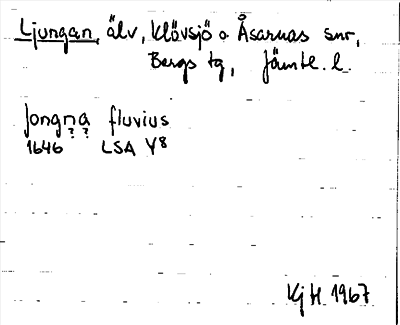 Ljungan, älv, Klövsjö o Åsarnas snr,
Bergs tg, Jämtl. l.
Jongna fluvius
? ?
1646 LSA Y8
Kj H 1967